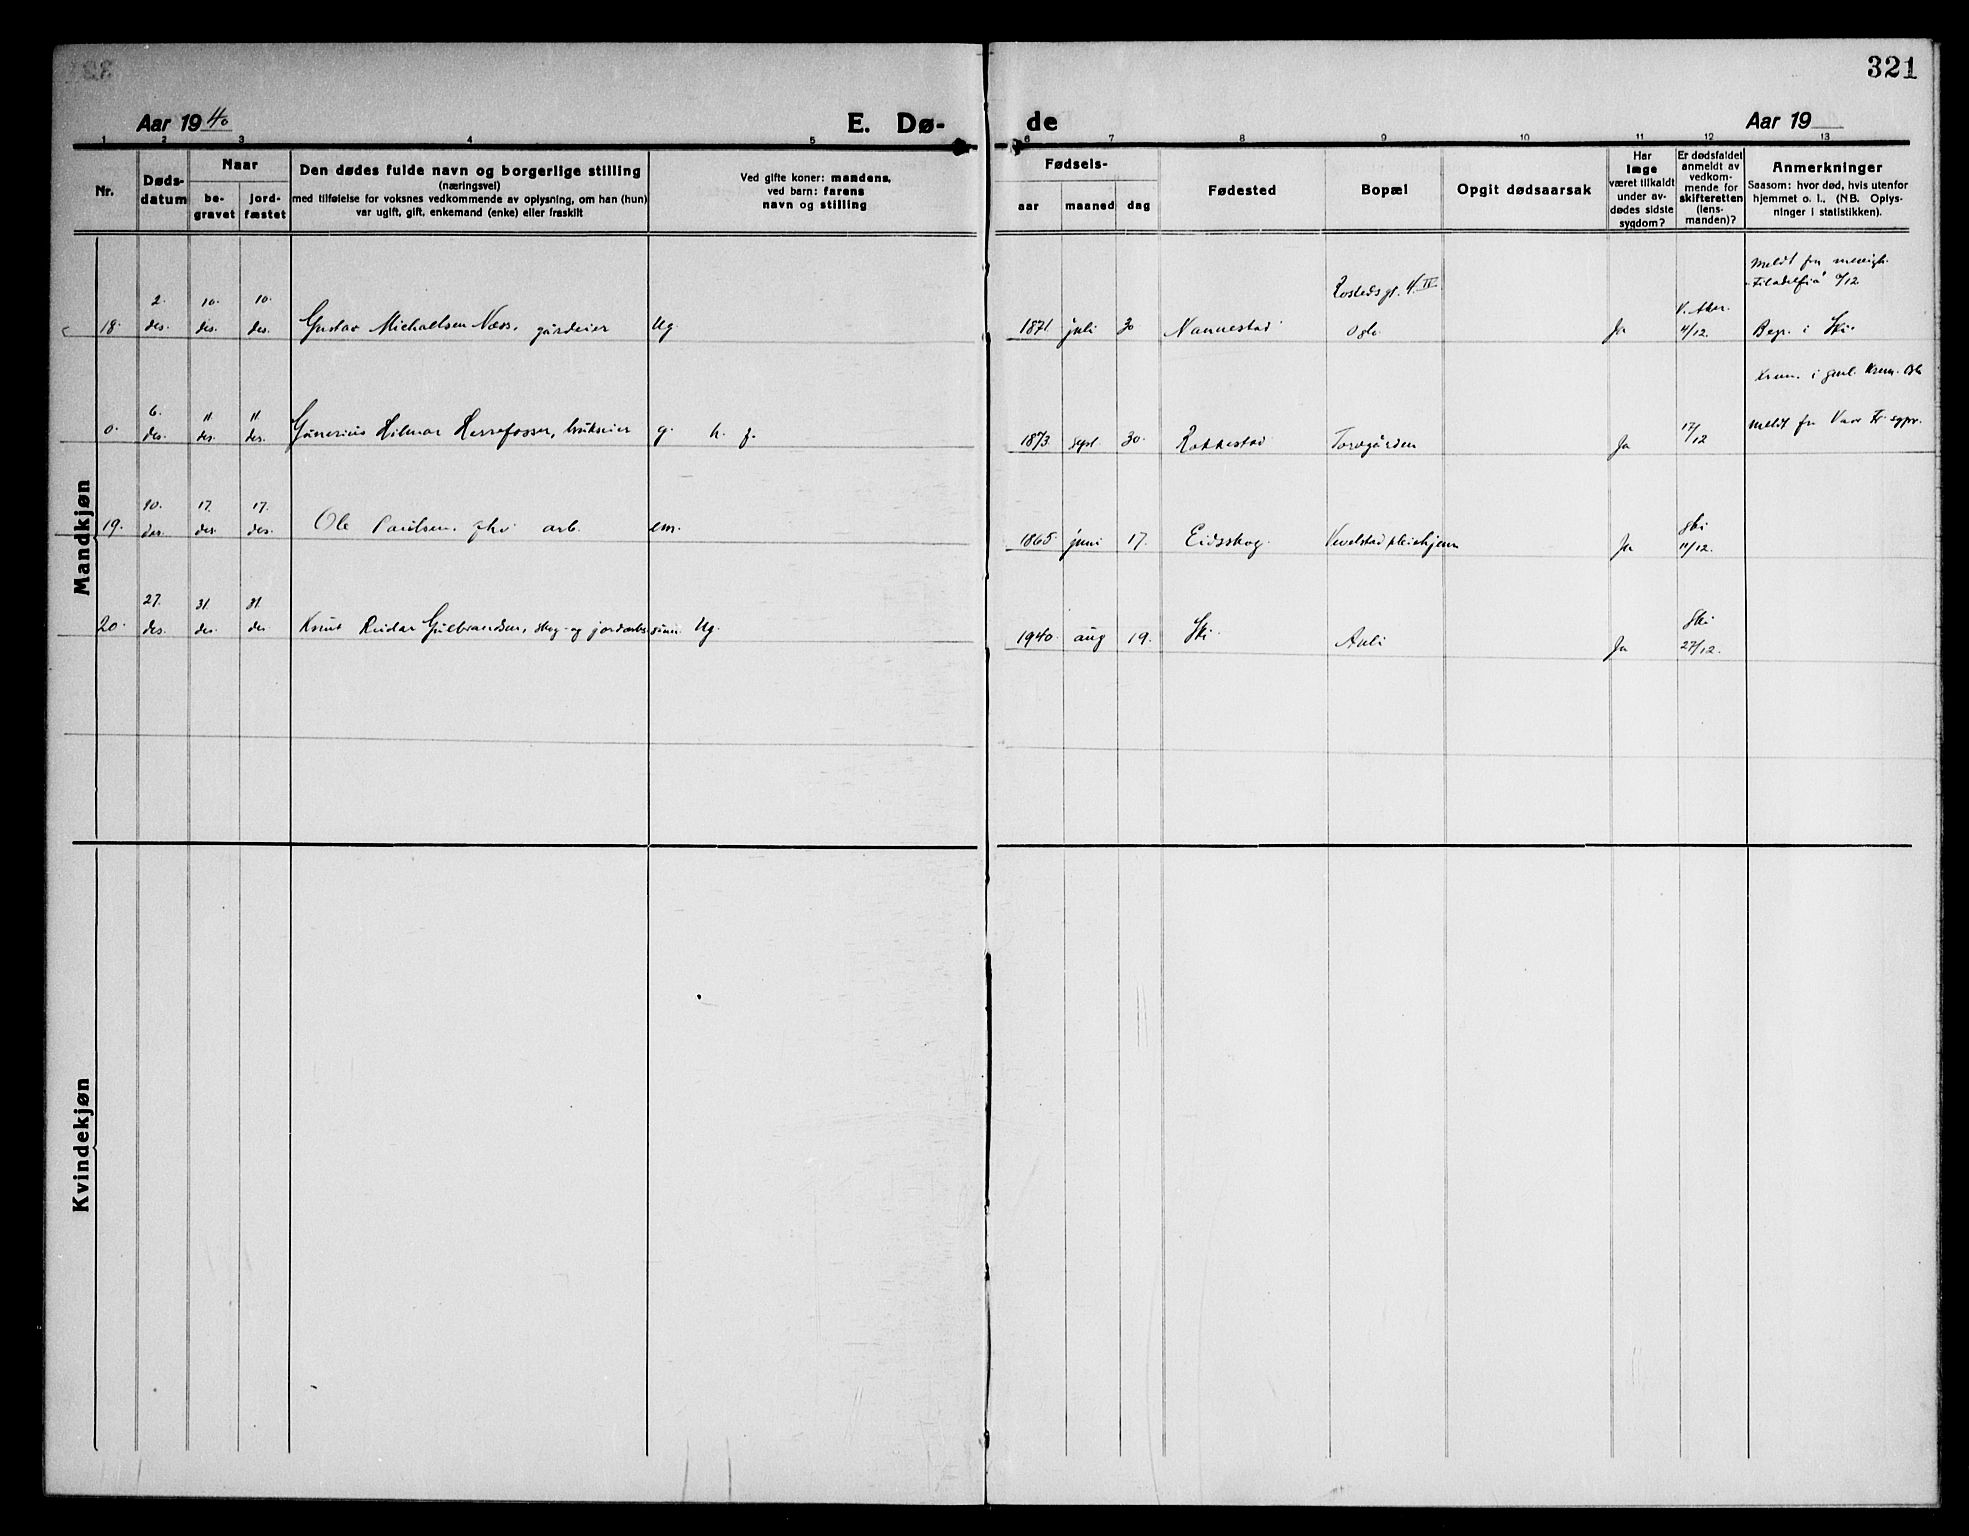 321
Aar 1940
E. Dø-
de
Aar 19
1 2 3 4 5 6 7 8 9 10 11 12 13
Nr.
Døds-
datum
Naar
be-
gravet
jord-
fæstet
Den dødes fulde navn og borgerlige stilling
(næringsvei)
med tilføielse for voksnes vedkommende av oplysning, om han (hun)
var ugift, gift, enkemand (enke) eller fraskilt
Ved gifte koner: mandens,
ved barn: farens
navn og stilling
Fødsels-
aar
maaned
dag
Fødested
Bopæl
Opgit dødsaarsak
Har
læge
været tilkaldt
under av-
dødes sidste
sygdom?
Er dødsfaldet
anmeldt av
vedkom-
mende for
skifteretten
(lens-
manden)?
Anmerkninger
Saasom: hvor død, hvis utenfor
hjemmet o. l., (NB. Oplys-
ninger i statistikken).
Mandkjøn
18. 2. des. 10. des. 10. des. Gustav Michaelsen Næss, gårdeier Ug. 1871 juli 30 Nannestad Oslo Ja V. Aker 4/12. Meldt fra
Filadelfia
Begr. i Ski.
0. 6. des. 11. des. 11. des. Gunerius Hilmar Herrefosser, brukseier g. h. f. 1873 sept 30. Rakkestad Toregården Ja 17/12 Krem. i Krem. Oslo
meldt fra Vår Fr. sgpr.
19. 10. des. 17. des. 17. des. Ole Paulsen, fhv. arb. em. 1865 juni 17. Eidsskog. Vevelstad pleiehjem Ja Ski 11/12.
20. 27. des. 31. des. 31. des Knut Reidar Gulbrandsen, skog- og jordarb. sønn. Ug. 1940. aug 19. Ski. Ja Ski 27/12.
Kvindekjøn